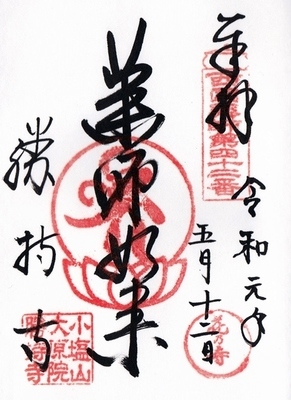 奉拝
西国薬師第四十二番
令和元年
五月十二日
薬師如来
勝持寺
花乃寺
小塩山
大原院
勝持寺